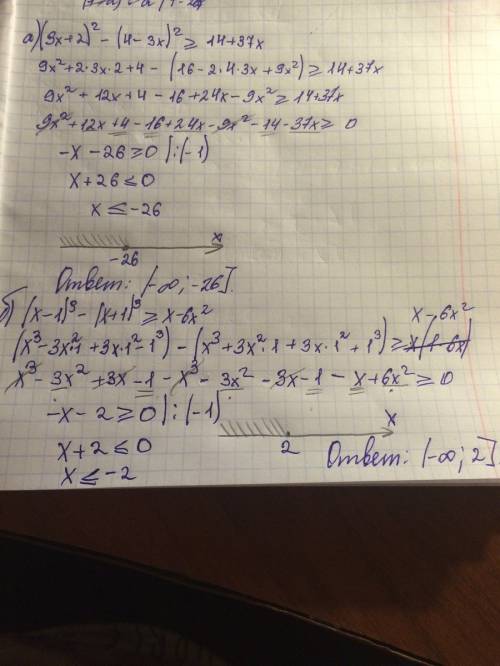 а) (9x+2)² - (4-3x)² ≥ 14+37x
9x²+2·3x·2+4 - (16-2·4·3x+9x²) ≥ 14+37x
9x² + 12x+4 - 16 +24x - 9x² ≥ 14+37x
9x²+12x+4-16+24x-9x²-14-37x ≥ 0
-x - 26 ≥ 0 |:(-1)
x+26 ≤ 0
x ≤ -26
x
-26
Ответ: (-∞; -26].
б) (x-1)³ - (x+1)³ ≥ x-6x²
x-6x²
(x³-3x²·1+3x·1²-1³) - (x³+3x²·1+3x·1²+1³) ≥ x(1-6x)
x³-3x²+3x-1-x³-3x²-3x-1-x+6x² ≥ 0
-x-2 ≥ 0 |:(-1)
x
x+2 ≤ 0
2
Ответ: (-∞; 2]
x ≤ -2